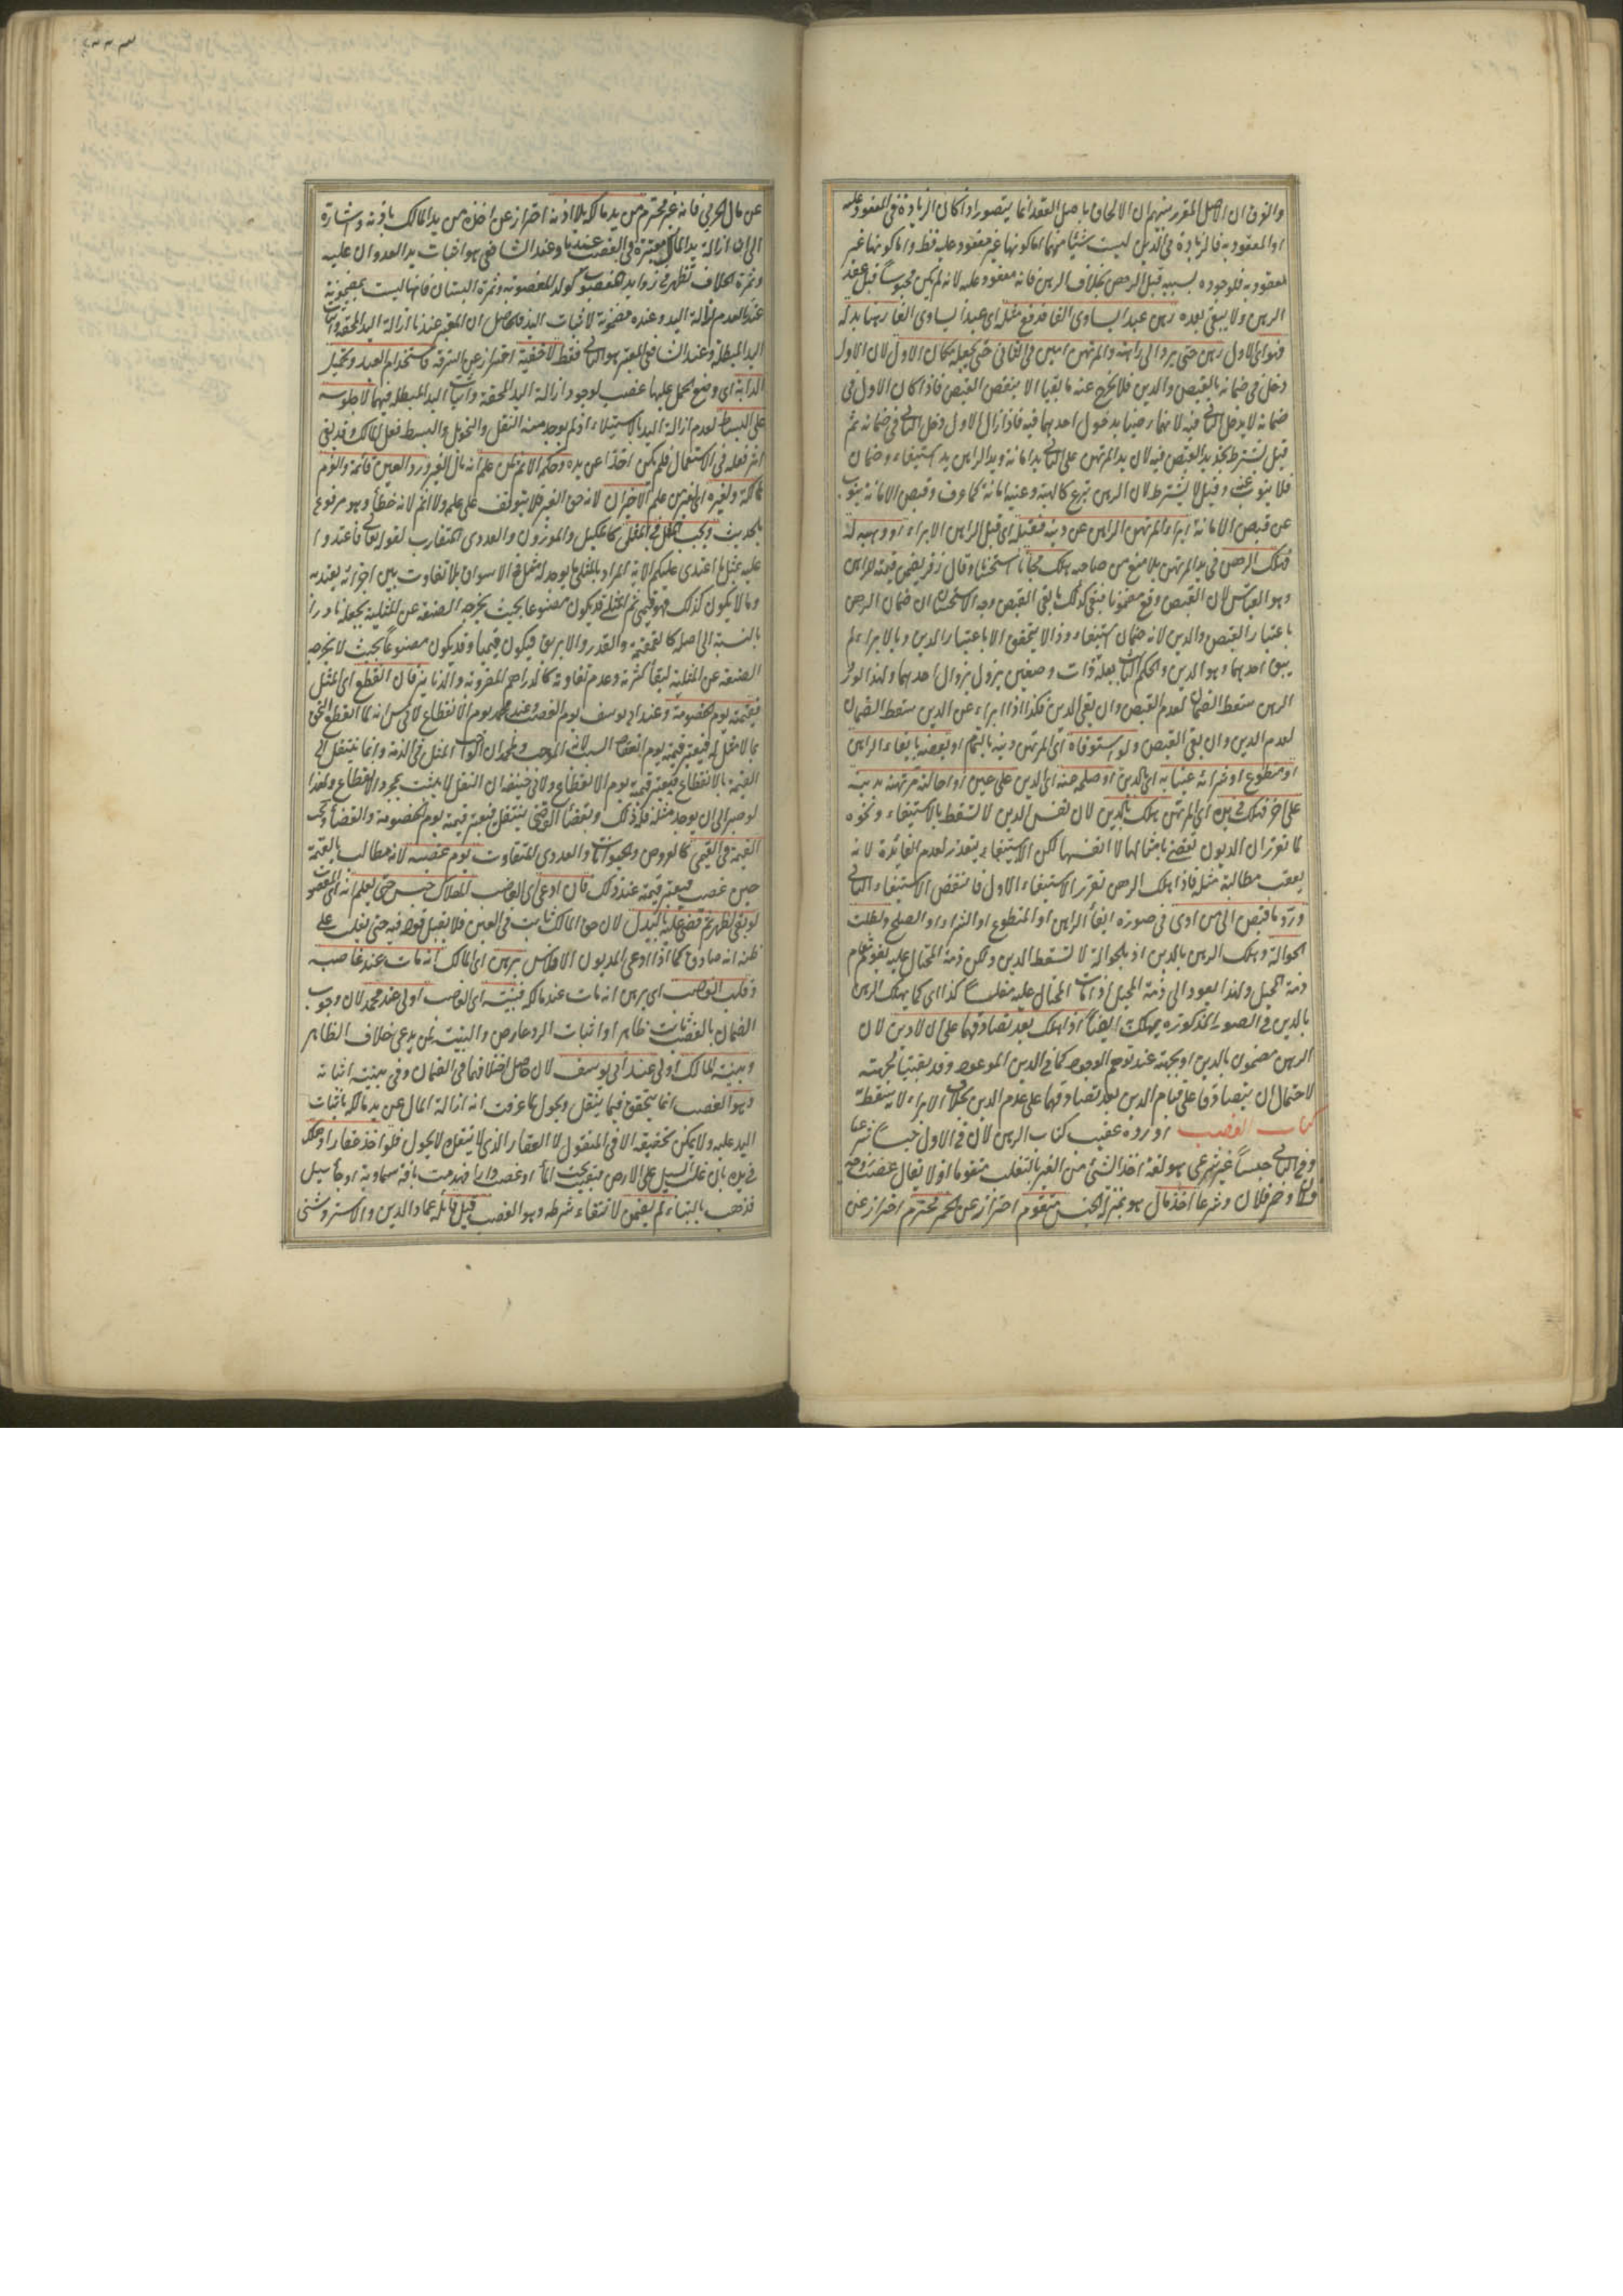 والفرق ان الاصل المقرر بينهم ان الالحاق باصل العقد انما يتصور اذا كان الزيادة في المعقود عليه
او المعقود به فالزيادة في الدين ليست شيئا منهما اما كونها غير معقود عليه فظ واما كونها غير
معقود به فلوجوده بسببه قبل الرهن بخلاف الرهن فانه معقود عليه لانه لم يكن محبوسا قبل عقد
الرهن ولا يبقى بعده رهن عبد ايساوى الفا فدفع مثله اى عبدا يساوى الفا رهنا بدله
فهو اى الاول رهن حتى يرد الى راهنه والمرتهن امين في الثاني حتى يجعله مكان الاول لان الاول
دخل في ضمانه بالقبض والدين فلا يخرج عنه ما بقيا الا بنقض القبض فاذا كان الاول في
ضمانه لا يدخل الثاني فيه لانهما رضيا بدخول احدهما فيه فاذا زال الاول دخل الثاني في ضمانه ثم
قيل يشترط تجديد القبض فيه لان يد المرتهن على الثاني يد امانة ويد الراهن يد استيفاء وضمان
فلا ينوب عنه وقيل لا يشترط لان الرهن تبرع كالهبة وعينه امانة كما عرف وقبض الامانة ينوب
عن قبض الامانة ابراء المرتهن الراهن عن دينه فقبله اى قبل الراهن الابراء او وهبه له
فهلك الرهن في يد المرتهن بلا منع من صاحبه هلك مجانا استحسانا وقال زفر يضمن قيمته للراهن
وهو القياس لان القبض وقع مضمونا فبقى كذلك ما بقى القبض وجه الاستحسان ان ضمان الرهن
باعتبار القبض والدين لانه ضمان استيفاء وذا لا يتحقق الا باعتبار الدين وبالابراء لم
يبق احدهما وهو الدين والحكم الثابت بعلة ذات وصفين يزول بزوال احدهما ولهذا لورد
الرهن سقط الضمان لعدم القبض وان بقى الدين فكذا اذا ابراء عن الدين سقط الضمان
لعدم الدين وان بقى القبض ولو استوفاه اى المرتهن دينه بالتمام او بعضه بايفاء الراهن
او متطوع او شرائه عينا به اى بالدين او صلحه عنه اى الدين على عين او احالته مرتهنه بدينه
على اخر فهلك في يده اى المرتهن هلك بالدين لان نفس الدين لا يسقط بالاستيفاء ونحوه
لما تقرر ان الديون تقضى بامثالها لا انفسها لكن الاستيفاء يتعذر لعدم الفائدة لانه
يعقب مطالبة مثله فاذا هلك الرهن تقرر الاستيفاء الاول فانتقض الاستيفاء الثاني
ورد ما قبض الى من ادى في صورة ايفاء الراهن او المتطوع او الشراء او الصلح وبطلت
الحوالة وهلك الرهن بالدين اذ بالحوالة لا يسقط الدين ولكن ذمة المحتال عليه تقوم مقام
ذمة المحيل ولهذا يعود الى ذمة المحيل اذا مات المحتال عليه مفلسا كذا اى كما يهلك الرهن
بالدين في الصور المذكورة يهلك ايضا اذا هلك بعد تصادقهما على ان لا دين لان
الرهن مضمون بالدين او بجهته عند توهم الوجود كما في الدين الموعود وقد بقيت الجهة
لاحتمال ان يتصادقا على قيام الدين بعد تصادقهما على عدم الدين بخلاف الابراء لانه يسقطه
كتاب الغصب اورده عقيب كتاب الرهن لان في الاول حبسا شرعيا
وفي الثاني حبسا غير شرعي هو لغة اخذ الشيء من الغير بالتغلب متقوما او لا يقال غصب زوجة
فلان وخمر فلان وشرعا اخذ مال هو بمنزلة الجنس متقوم احتراز عن الخمر محترم احتراز عن
عن مال الحربي فانه غير محترم من يد مالكه بلا اذنه احتراز عن اخذه من يد المالك باذنه واشارة
الى ان ازالة يد المالك معتبرة في الغصب عندنا وعند الشافعي هو اثبات يد العدوان عليه
وثمرة الخلاف تظهر في زوايد المغصوب كولد المغصوبة وثمرة البستان فانها ليست بمضمونة
عندنا لعدم ازالة اليد وعنده مضمونة لاثبات اليد فالحاصل ان المعتبر عندنا ازالة اليد المحقة واثبات
اليد المبطلة وعند الشافعي المعتبر هو الثاني فقط لا خفية احتراز عن السرقة فاستخدام العبد وتحميل
الدابة اى وضع الحمل عليها غصب لوجود ازالة اليد المحقة واثبات اليد المبطلة فيهما لا جلوسه
على البساط لعدم ازالة اليد بالاستيلاء اذ لم يوجد منه النقل والتحويل والبسط فعل المالك وقد بقى
اثر فعله في الاستعمال فلم يكن اخذا عن يده وحكمه الاثم لمن علم انه مال الغير ورد العين قائمة والغرم
هالكة ولغيره اى لغير من علم الاخيران لانه حق الغير فلا يتوقف على علمه ولا اثم لانه خطأ وهو مرفوع
بالحديث ويجب المثل في المثلي كالمكيل والموزون والعددي المتقارب لقوله تعالى فاعتدوا
عليه بمثل ما اعتدى عليكم الاية المراد بالمثلي ما يوجد له مثل في الاسواق بلا تفاوت بين اجزائه يعتد به
وما لا يكون كذلك فهو قيمي ثم المثلي قد يكون مصنوعا بحيث يخرجه الصنعة عن المثلية بجعله نادرا
بالنسبة الى اصله كالقمقمة والقدر والابريق فيكون قيميا وقد يكون مصنوعا بحيث لا يخرجه
الصنعة عن المثلية لبقاء كثرته وعدم تفاوته كالدراهم المضروبة والدنانير فان انقطع اى المثل
فقيمته يوم الخصومة وعند ابي يوسف يوم الغصب وعند محمد يوم الانقطاع لابي س انه لما انقطع التحق
بما لا مثل له فيعتبر قيمته يوم انعقاد السبب اذ هو الموجب ولمحمد ان الواجب المثل في الذمة وانما ينتقل الى
القيمة بالانقطاع فيعتبر قيمته يوم الانقطاع ولابي حنيفة ان النقل لا يثبت بمجرد الانقطاع ولهذا
لو صبر الى ان يوجد مثله فله ذلك وبقضاء القاضي ينتقل فيعتبر قيمته يوم الخصومة والقضاء وتجب
القيمة في القيمي كالعروض والحيوانات والعددي المتفاوت يوم غصبه لانه مطالب بالقيمة
حين غصب فيعتبر قيمته عند ذلك فان ادعى اى الغاصب الهلاك حبس حتى يعلم انه اى المغصوب
لو بقى لظهر ثم قضى عليه بالبدل لان حق المالك ثابت في العين فلا يقبل قوله فيه حتى يغلب على
ظنه انه صادق كما اذا ادعى المديون الافلاس برهن اى المالك انه مات عند غاصبه
وقلب الغاصب اى برهن انه مات عند مالكه فبينته اى الغاصب اولى عند محمد لان وجوب
الضمان بالغصب ثابت ظاهرا واثبات الرد عارض والبينة لمن يدعى خلاف الظاهر
وبينة المالك اولى عند ابي يوسف لان حاصل اختلافهما في الضمان وفي بينته اثباته
وهو الغصب انما يتحقق فيما ينقل ويحول لما عرفت انه ازالة المال عن يد مالكه باثبات
اليد عليه ولا يمكن تحقيقه الا في المنقول لا العقار الذي لا ينقل ولا يحول فلو اخذ عقارا وهلك
في يده بان غلب السيل على الارض فبقيت تحت الماء او غصب دارا فهدمت بافة سماوية او جاء سيل
فذهب بالبناء لم يضمن لانتفاء شرطه وهو الغصب قيل قائله عماد الدين والاستروشني